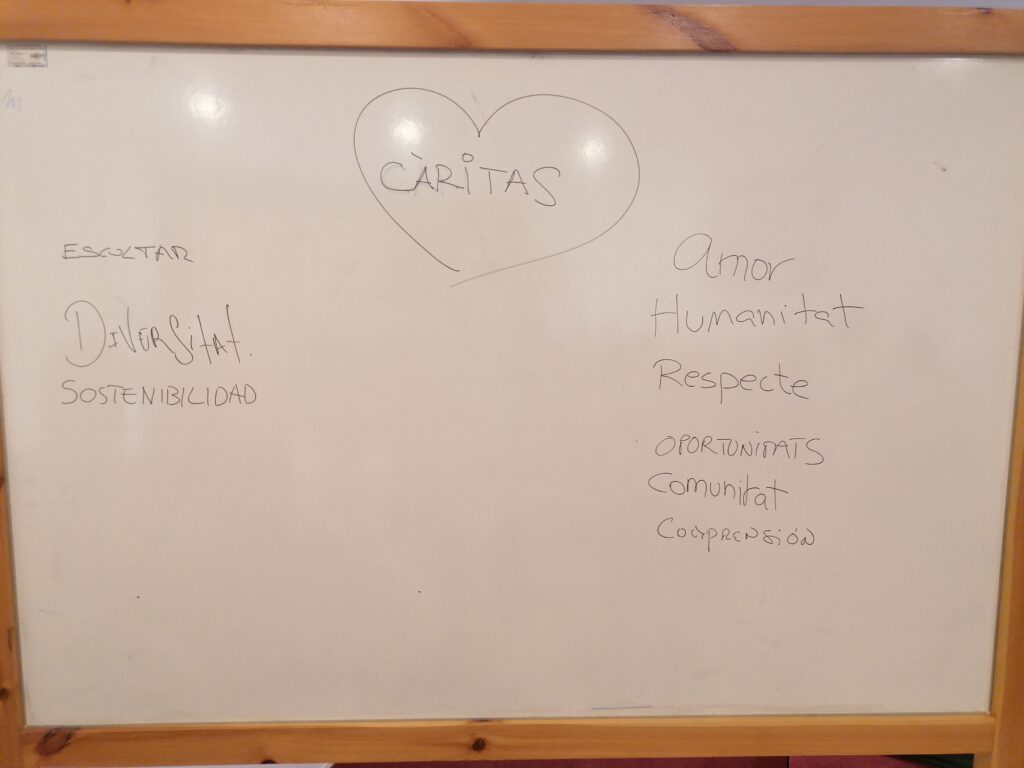 CÀRITAS
ESCOLTAR
DIVERSITAT.
SOSTENIBILIDAD
Amor
Humanitat
Respecte
OPORTUNITATS
Comunitat
COMPRENSIÓN